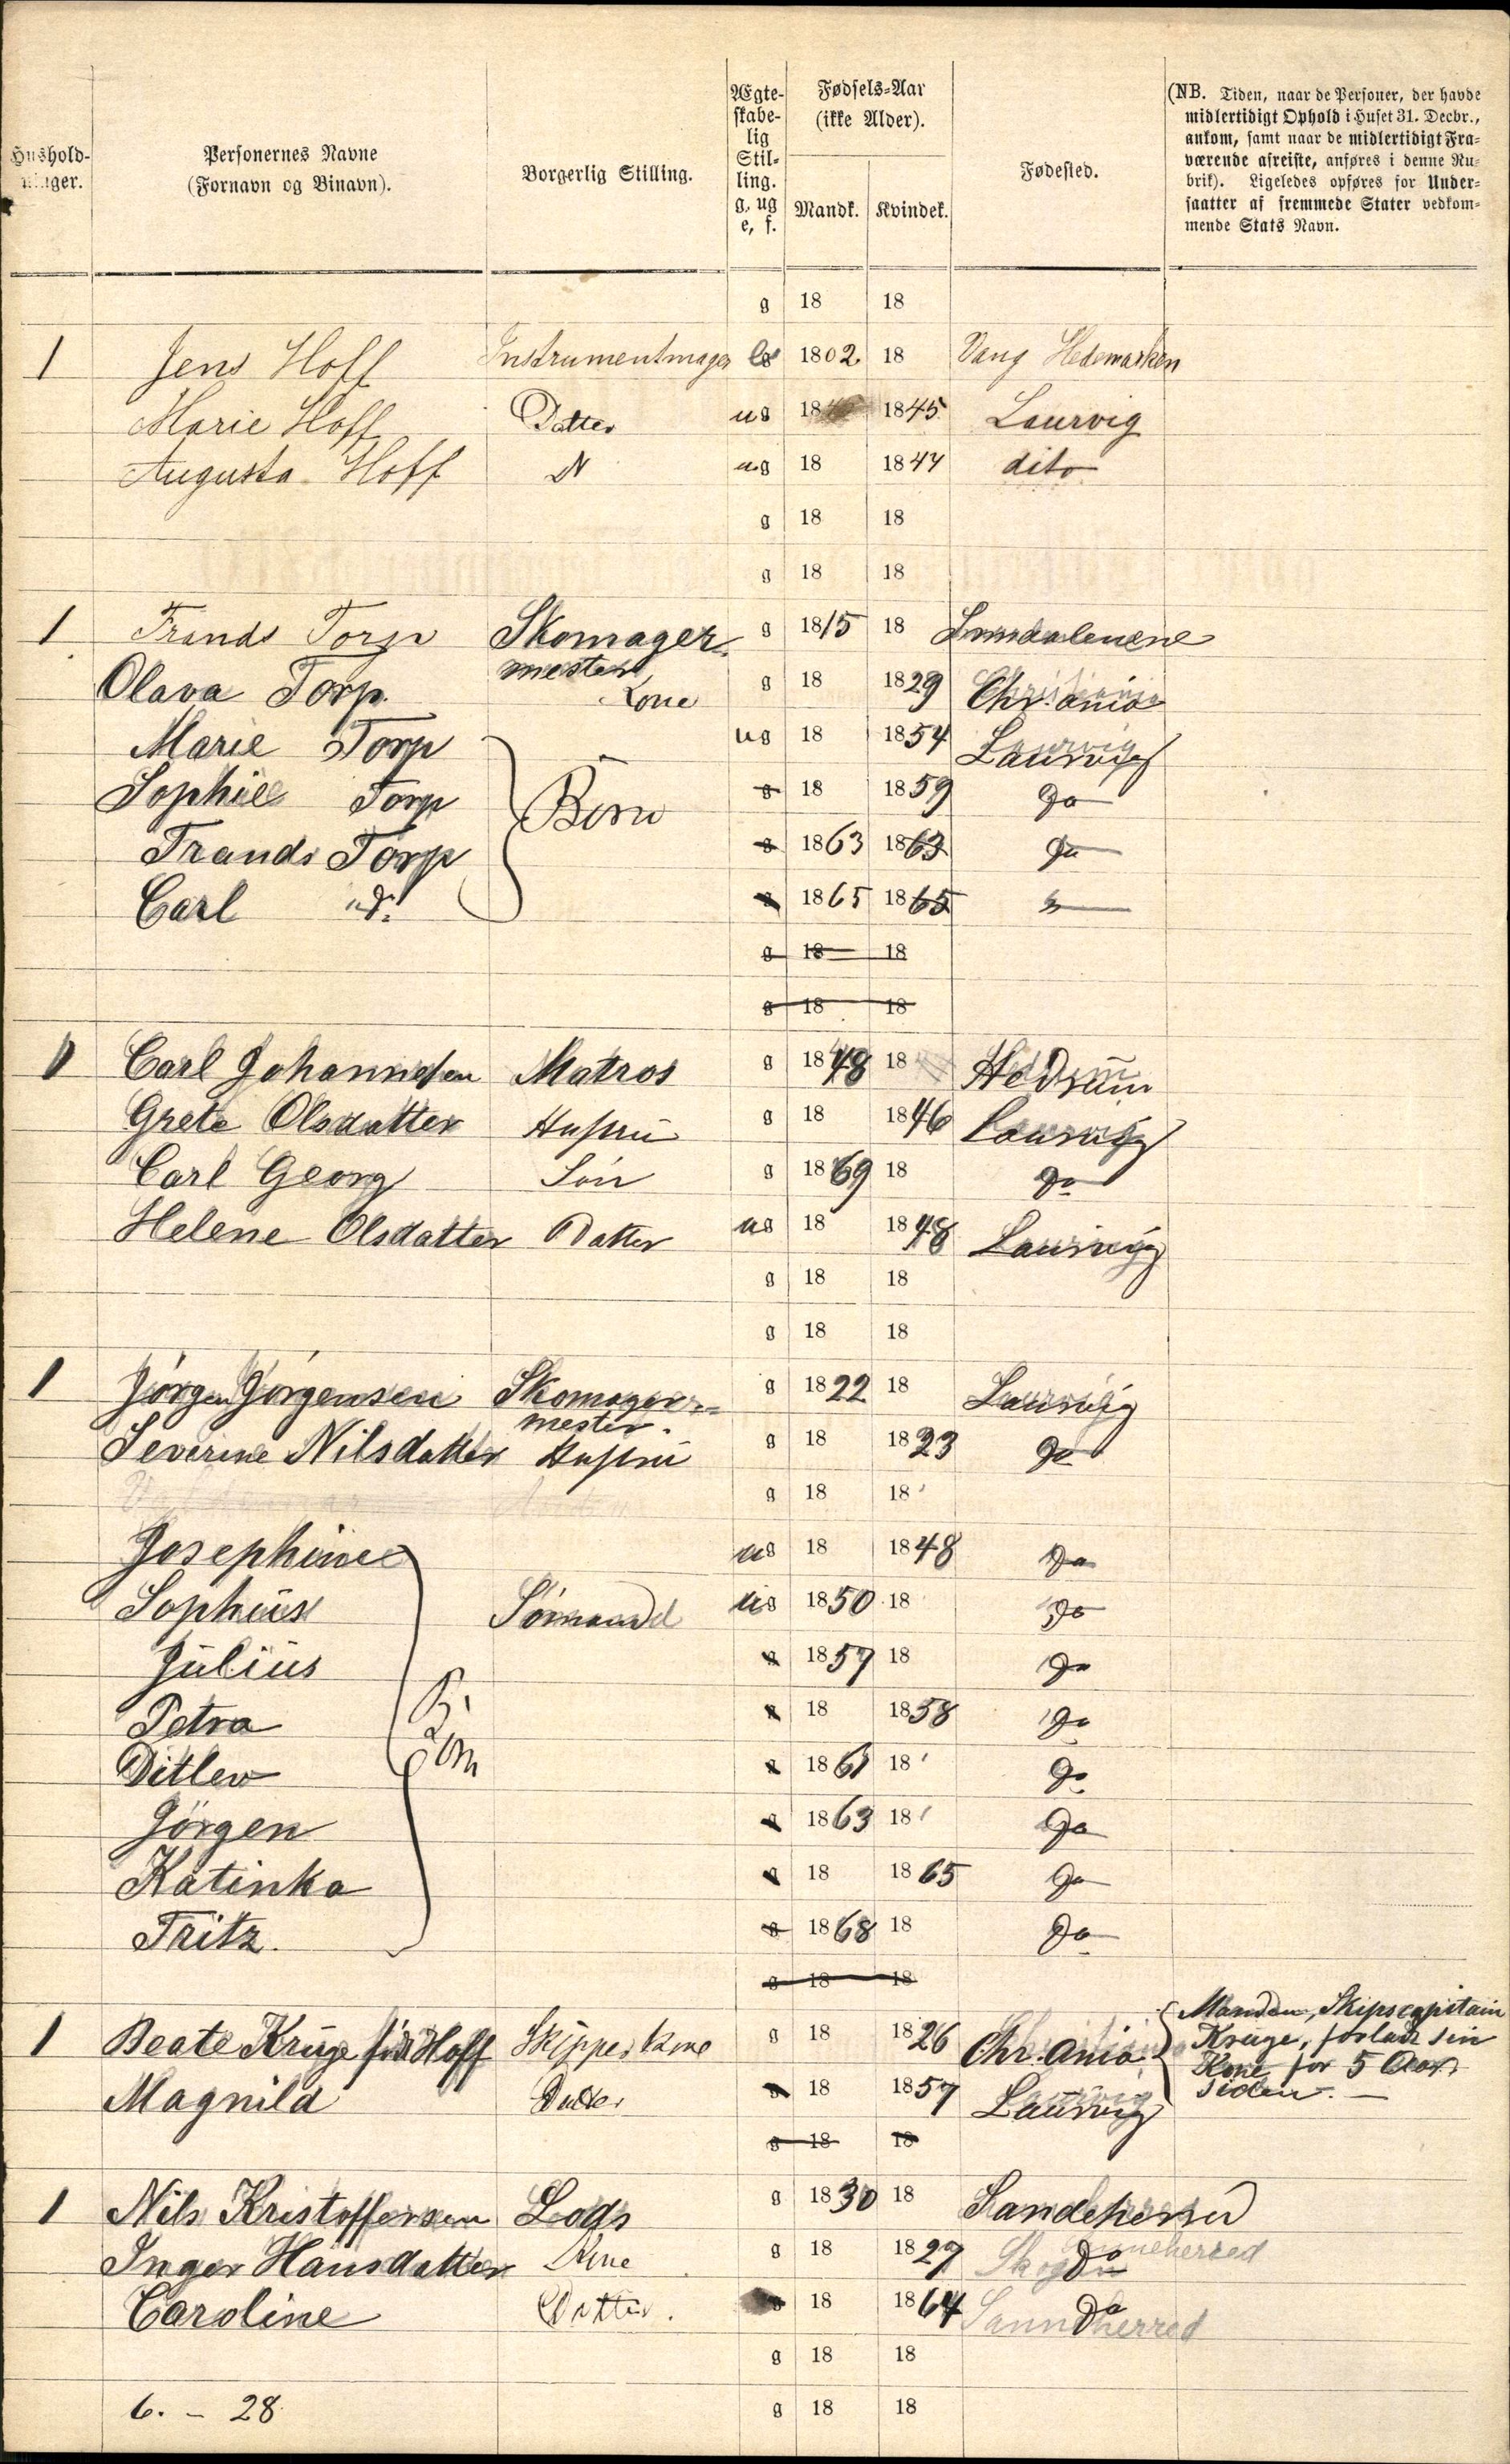 Hushold-
ninger.
Personernes Navne
(Fornavn og Binavn).
Borgerlig Stilling.
Ægte-
skabe-
lig
Stil-
ling.
g, ug
e, f.
Fødsels-Aar
(ikke Alder).
Mandk. Kvindek.
Fødested.
(NB. Tiden, naar de Personer, der havde
midlertidigt Ophold i Huset 31. Decbr.,
ankom, samt naar de midlertidigt Fra-
værende afreiste, anføres i denne Ru-
brik). Ligeledes opføres for Under-
saatter af fremmede Stater vedkom-
mende Stats Navn.
g 18 18
1 Jens Hoff Instrumentmager e 1802 18 Vang Hedemarken
Marie Hoff Datter ug 18 1845 Laurvig
Augusta Hoff ug 18 1847 dito
g 18 18
g 18 18
1 Frands Torp Skomager- g 1815 18
mester
Olava Torp Kone g 18 1829 Chr.ania
Marie Torp ug 18 1854 Laurvig
Sophie Torp Børn g 18 1859 Do
Frands Torp g 1863 1863 Do
Carl d: g 1865 1865
g 18 18
g 18 18
1 Carl Johannesen Matros g 1848 18 Hedrum
Grete Olsdatter Hustru g 18 1846 Laurvig
Carl Georg Søn g 1869 18 Do
Helene Olsdatter Datter ug 18 1848 Laurvig
g 18 18
g 18 18
1 Jørgen Jørgensen Skomager- g 1822 18 Laurvig
mester.
Severine Nilsdatter Hustru g 18 1823 Do
g 18 18
Josephine ug 18 1848 Do
Sophus Sømand ug 1850 18 Do
Julius g 1857 18 Do
Petra Børn g 18 1858 Do
Ditlev g 1861 18 Do
Jørgen g 1863 18 Do
Katinka g 18 1865 Do
Fritz. g 1868 18 Do
g 18 18
1 Beate Krüge född Hoff Skipperkone g 18 1826 Chr.ania
Manden, Skipscapitain
Krüge, forladt sin
Kone for 5 Aar
siden. —
Magnild Datter g 18 1857 Laurvig
g 18 18
1 Nils Kristoffersen Lods g 1830 18 Sandeherred
Inger Hansdatter Kone g 18 1827 Do
Caroline Datter. g 18 1864 Do
g 18 18
6. - 28 g 18 18